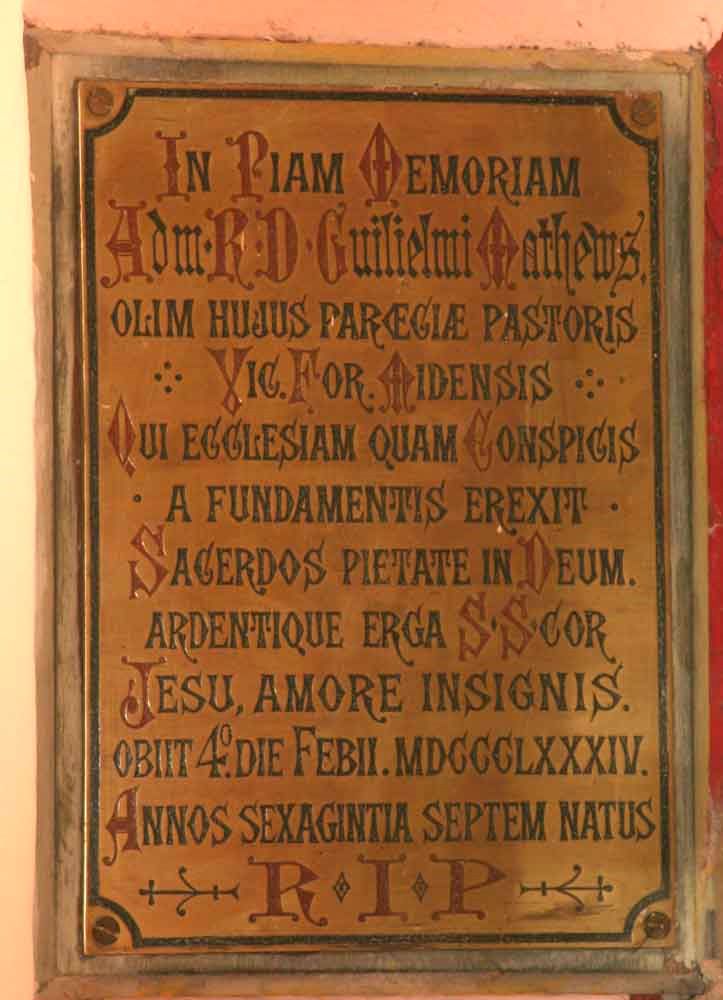 In Piam Memoriam
Adm·R·D·Guilielmi Mathews,
OLIM HUJUS PARŒCIÆ PASTORIS
Vic. For. Midensis
Qui ECCLESIAM QUAM Conspicis
· A FUNDAMENTIS EREXIT ·
Sacerdos PIETATE IN Deum.
ARDENTIQUE ERGA S·S·COR
Jesu, AMORE INSIGNIS.
OBIIT 4º. DIE Febii. MDCCCLXXXIV.
Annos SEXAGINTIA SEPTEM NATUS
R I P